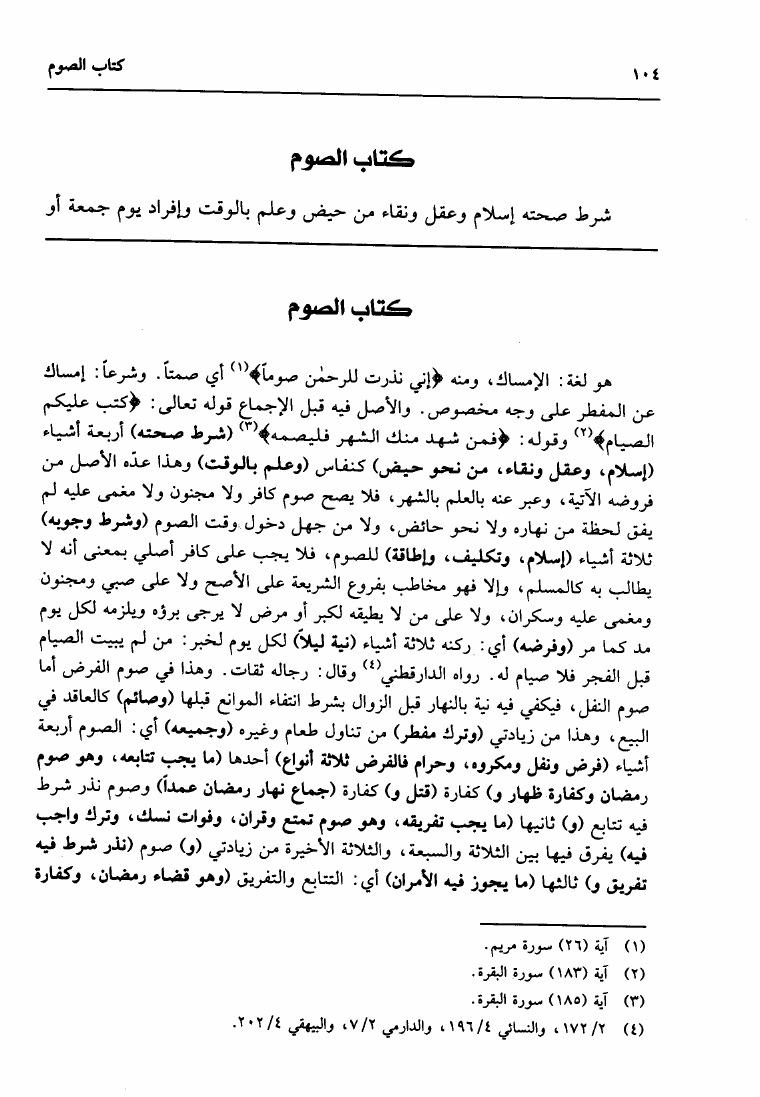 ١٠٤
كتاب الصوم
كتاب الصوم
شرط صحته إسلام وعقل ونقاء من حيض وعلم بالوقت وإفراد يوم جمعة أو
كتاب الصوم
هو لغة: الإمساك، ومنه ﴿إني نذرت للرحمٰن صوماً﴾(١) أي صمتاً. وشرعاً: إمساك
عن المفطر على وجه مخصوص. والأصل فيه قبل الإجماع قوله تعالى: ﴿كتب عليكم
الصيام﴾(٢) وقوله: ﴿فمن شهد منك الشهر فليصمه﴾(٣) (شرط صحته) أربعة أشياء
(إسلام، وعقل ونقاء، من نحو حيض) كنفاس (وعلم بالوقت) وهذا عدّه الأصل من
فروضه الآتية، وعبر عنه بالعلم بالشهر، فلا يصح صوم كافر ولا مجنون ولا مغمى عليه لم
يفق لحظة من نهاره ولا نحو حائض، ولا من جهل دخول وقت الصوم (وشرط وجوبه)
ثلاثة أشياء (إسلام، وتكليف، وإطاقة) للصوم، فلا يجب على كافر أصلي بمعنى أنه لا
يطالب به كالمسلم، وإلا فهو مخاطب بفروع الشريعة على الأصح ولا على صبي ومجنون
ومغمى عليه وسكران، ولا على من لا يطيقه لكبر أو مرض لا يرجى برؤه ويلزمه لكل يوم
مد كما مر (وفرضه) أي: ركنه ثلاثة أشياء (نية ليلاً) لكل يوم لخبر: من لم يبيت الصيام
قبل الفجر فلا صيام له. رواه الدارقطني(٤) وقال: رجاله ثقات. وهذا في صوم الفرض أما
صوم النفل، فيكفي فيه نية بالنهار قبل الزوال بشرط انتفاء الموانع قبلها (وصائم) كالعاقد في
البيع، وهذا من زيادتي (وترك مفطر) من تناول طعام وغيره (وجميعه) أي: الصوم أربعة
أشياء (فرض ونفل ومكروه، وحرام فالفرض ثلاثة أنواع) أحدها (ما يجب تتابعه، وهو صوم
رمضان وكفارة ظهار و) كفارة (قتل و) كفارة (جماع نهار رمضان عمداً) وصوم نذر شرط
فيه تتابع (و) ثانيها (ما يجب تفريقه، وهو صوم تمتع وقران، وفوات نسك، وترك واجب
فيه) يفرق فيها بين الثلاثة والسبعة، والثلاثة الأخيرة من زيادتي (و) صوم (نذر شرط فيه
تفريق و) ثالثها (ما يجوز فيه الأمران) أي: التتابع والتفريق (وهو قضاء رمضان، وكفارة
(١) آية (٢٦) سورة مريم.
(٢) آية (١٨٣) سورة البقرة.
(٣) آية (١٨٥) سورة البقرة.
(٤) ١٧٢/٢، والنسائي ١٩٦/٤، والدارمي ٧/٢، والبيهقي ٢٠٢/٤.